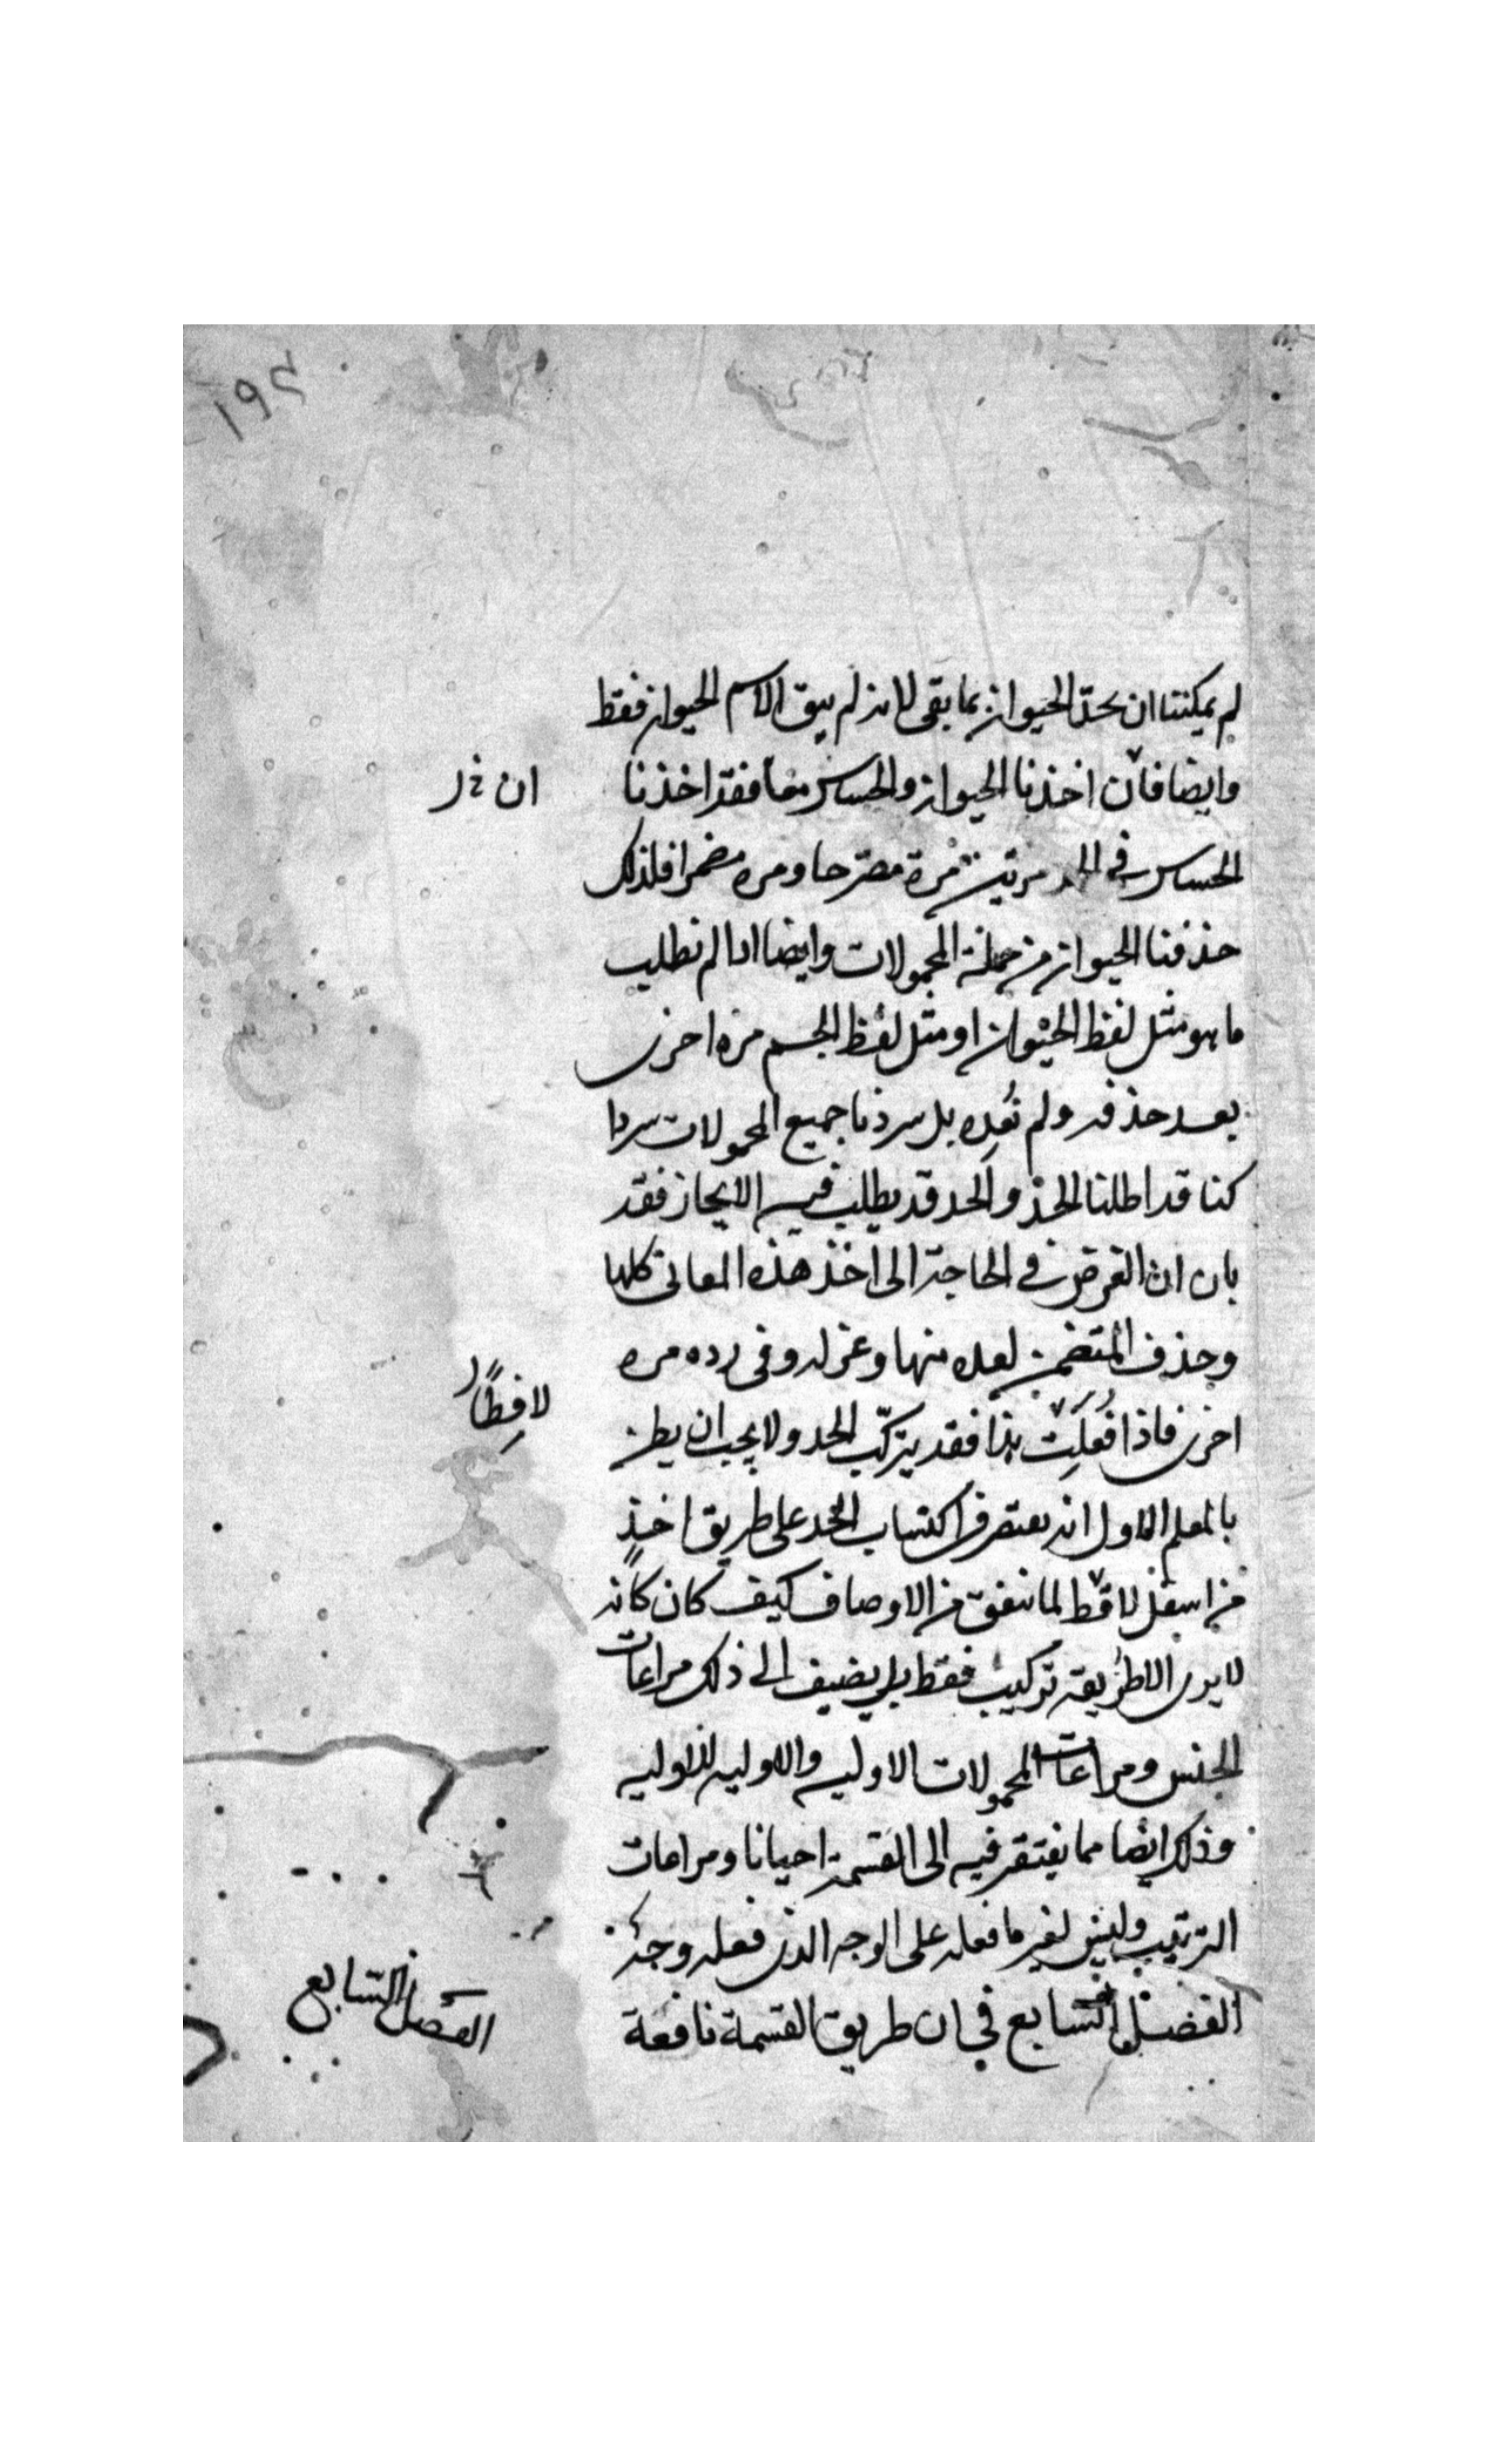 ١٩٤
لم يمكننا ان نحد الحيوان بما بقى لانه لم يبق الا اسم الحيوان فقط
وايضا فان اخذنا الحيوان والحساس معا فقد اخذنا
ان خ ر
الحساس فى الحد مرتين مرة مصرحا ومره مضمرا فلذلك
حذفنا الحيوان من جملة المحمولات وايضا اذا لم نطلب
ما هو مثل لفظ الحيوان او مثل لفظ الجسم مره اخرى
بعد حذفه ولم نعده بل سردنا جميع المحمولات سردا
كنا قد اطلنا الحد والحد قد يطلب فيه الايجاز فقد
بان ان الغرض فى الحاجة الى اخذ هذه المعانى كلها
وحذف المتضمن لعده منها وعزله وفى رده مره
لافِظًا
اخرى فاذا فُعِلَت هذا فقد يتركّب الحد ولا يجب ان يظن
بالمعلم الاول انه يقتصر فى اكتساب الحد على طريق اخذٍ
من اسفل لاقط لما يتفق من الاوصاف كيف كان كانه
لا يرى الا طريقة تركيب فقط بل يضيف الى ذلك مراعات
الجنس ومراعات المحمولات الاوليه والاوليه للاوليه
وذلك ايضا مما يفتقر فيه الى القسمة احيانا ومراعات
الترتيب وليس لغير ما فعله على الوجه الذى فعله وجه
الفصل السابع فى ان طريق القسمة نافعة
الفصل السابع